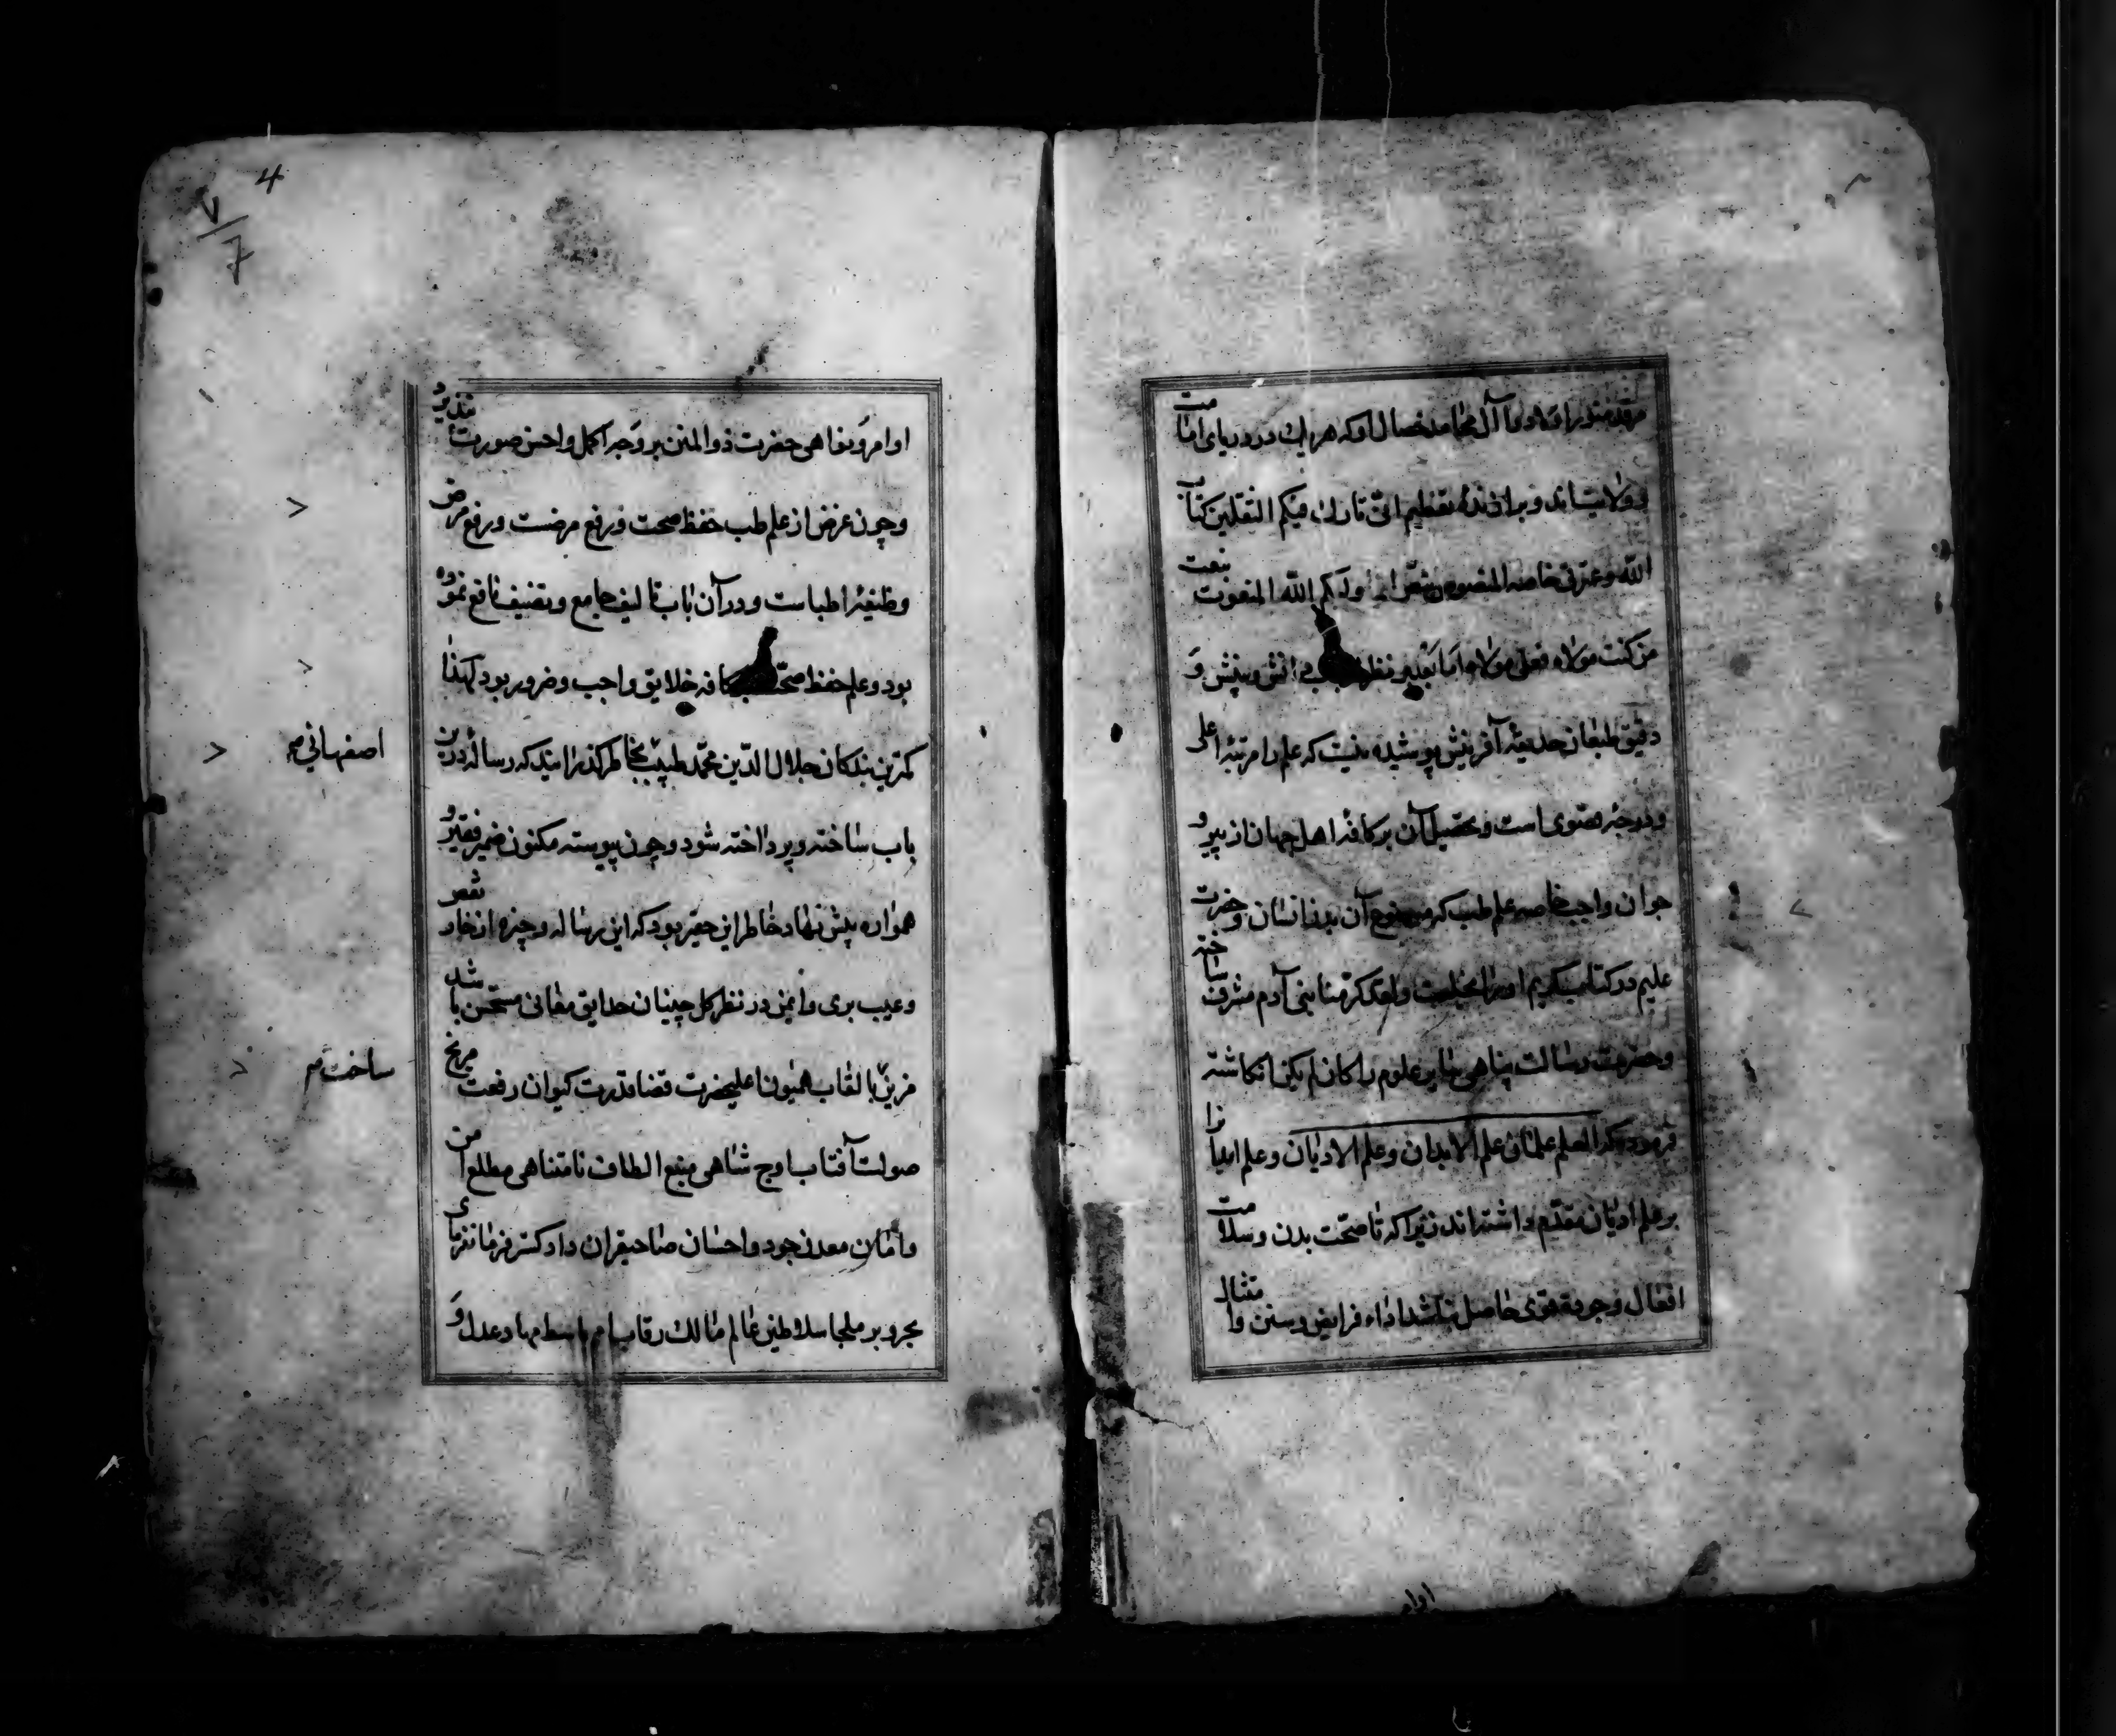 مرقد منور او و اولاد و آل محامد خصال او که هر یک در دریای امامت
و ولایت‌اند و برازندهٔ تعظیم انی تارک فیکم الثقلین کتاب
الله و عترتی خاصه المنصوص بنص انما ولیکم الله المنعوت بنعت
من کنت مولاه فعلی مولاه اما بعد بر نظر دانش و بینش و
دقیق طبعان حدیقهٔ آفرینش پوشیده نیست که علم را مرتبهٔ اعلی
و درجهٔ قصوی است و تحصیل آن بر کافهٔ اهل جهان از پیر و
جوان واجب خاصه علم طب که موضوع آن بدن انسان و حضرت
علیم در کتاب کریم او را بخلعت و لقد کرمنا بنی آدم مشرف ساخته
و حضرت رسالت پناهی بنابر علوم را کان لم یکن انکاشته
فرموده که العلم علمان علم الابدان و علم الادیان و علم ابدانرا
بر علم ادیان مقدم داشته‌اند زیرا که تا صحت بدن و سلامت
افعال و جودة قوی حاصل نباشد اداء فرایض و سنن و امتثال
اوامر
4
۷
7
اوامر و نواهی حضرت ذوالمنن بر وجه اکمل و احسن صورت نپذیرد
و چون غرض از علم طب حفظ صحت و رفع مرضست و رفع مرض
وظیفهٔ اطباست و در آن باب تالیف جامع و تصنیف نافع نموده
بود و علم حفظ صحت کافه خلایق واجب و ضرور بود لهذا
کمترین بندکان جلال الدین محمد طبیب بخاطر کذرانید که رسالهٔ درین
اصفهانی
باب ساخته و پرداخته شود و چون پیوسته مکنون ضمیر فقیر و
همواره پیش نهاد خاطر این حقیر بود که این رساله وجیزه از خار نقص
و عیب بری و ایمن در نظر کل چینان حدایق معانی مستحسن باشد
مزین بالقاب همیون اعلیحضرت قضا قدرت کیوان رفعت مریخ
ساخت
صولت آفتاب اوج شاهی منبع الطاف نامتناهی مطلع امن
و امان معدن جود و احسان صاحبقران دادکستر فرمانفرمای
بحر و بر ملجا سلاطین عالم مالک رقاب امم باسط مهاد عدل و